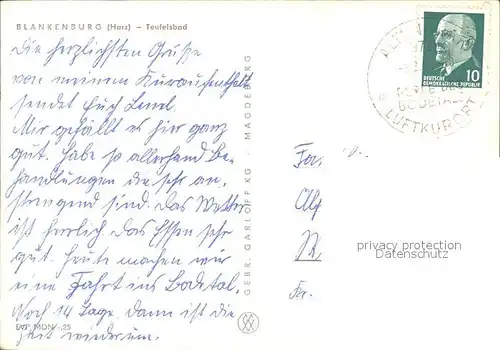 BLANKENBURG (Harz) – Teufelsbad
Die herzlichsten Grüße
von meinem Kuraufenthalt
sendet Euch
Mir gefällt es hier ganz
gut. Habe so allerhand Be-
handlungen die sehr an-
strengend sind. Das Wetter
ist herrlich das Essen sehr
gut. Heute machen wir
eine Fahrt ins Bodetal.
Noch 14 Tage dann ist die
Zeit wiederum.
EVP MDN -.25
GEBR. GARLOFF KG - MAGDEBURG
10
DEUTSCHE
DEMOKRATISCHE REPUBLIK
BODETAL
LUFTKURORT
Fam.
privacy protection
Datenschutz